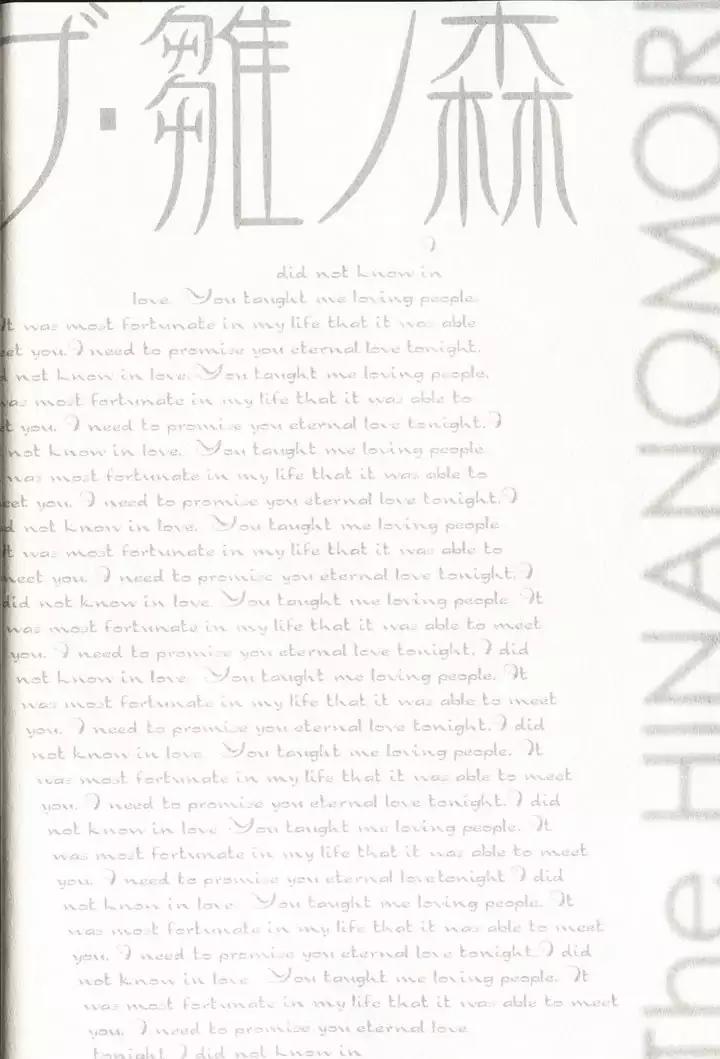 ブ・雛ノ森
The HINANOMORI
I
did not know in
love. You taught me loving people.
It was most fortunate in my life that it was able
eet you. I need to promise you eternal love tonight.
d not know in love. You taught me loving people.
was most fortunate in my life that it was able to
t you. I need to promise you eternal love tonight. I
not know in love. You taught me loving people
was most fortunate in my life that it was able to
eet you. I need to promise you eternal love tonight. I
d not know in love. You taught me loving people
It was most fortunate in my life that it was able to
meet you. I need to promise you eternal love tonight. I
did not know in love. You taught me loving people It
was most fortunate in my life that it was able to meet
you. I need to promise you eternal love tonight. I did
not know in love. You taught me loving people. It
was most fortunate in my life that it was able to meet
you. I need to promise you eternal love tonight. I did
not know in love. You taught me loving people. It
was most fortunate in my life that it was able to meet
you. I need to promise you eternal love tonight. I did
not know in love. You taught me loving people. It
was most fortunate in my life that it was able to meet
you. I need to promise you eternal love tonight I did
not know in love. You taught me loving people. It
was most fortunate in my life that it was able to meet
you. I need to promise you eternal love tonight. I did
not know in love. You taught me loving people. It
was most fortunate in my life that it was able to meet
you. I need to promise you eternal love
tonight. I did not know in